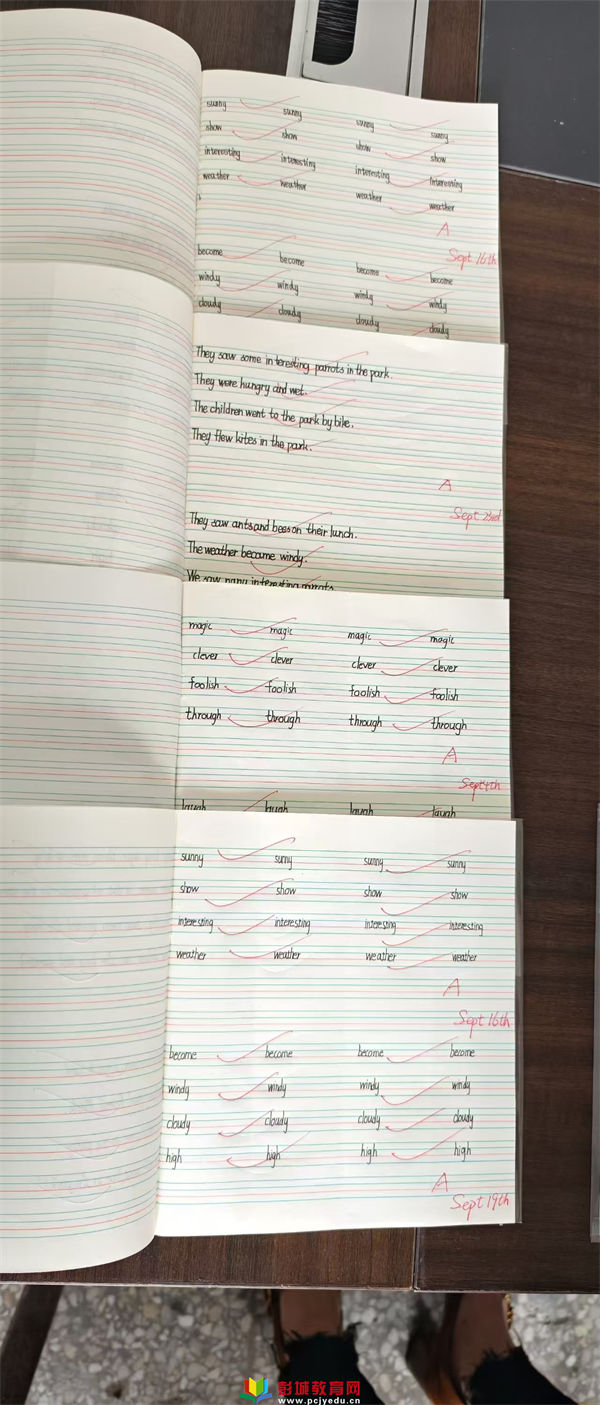 sunny sunny sunny sunny
show show show show
interesting interesting interesting interesting
weather weather weather weather
A
Sept 16th
become become become become
windy windy windy windy
cloudy cloudy cloudy cloudy
They saw some in teresting parrots in the park.
They were hungry and wet.
The children went to the park by bike.
They flew kites in the park.
A
Sept 23rd
They saw ants and bees on their lunch.
The weather became windy.
We saw many interesting parrots
magic magic magic magic
clever clever clever clever
foolish foolish foolish foolish
through through through through
A
Sept 4th
laugh laugh laugh laugh
sunny sunny sunny sunny
show show show show
interesting interesting interesting interesting
weather weather weather weather
A
Sept 16th
become become become become
windy windy windy windy
cloudy cloudy cloudy cloudy
high high high high
A
Sept 19th
彭城教育网
www.pcjyedu.cn